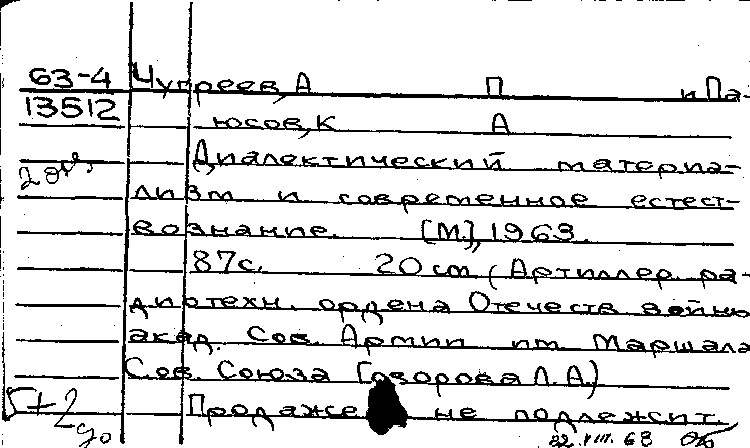 63-4 Чупреев, А П и Па-
13512 юсов, К А
Диалектический материа-
лизм и современное естест-
вознание. [М.], 1963.
87с. 20 см (Артиллер. ра-
диотехн. ордена Отечеств войны
акад. Сов. Армии им Маршала
Сов. Союза Говорова Л. А.)
5+2
Продаже не подлежит.